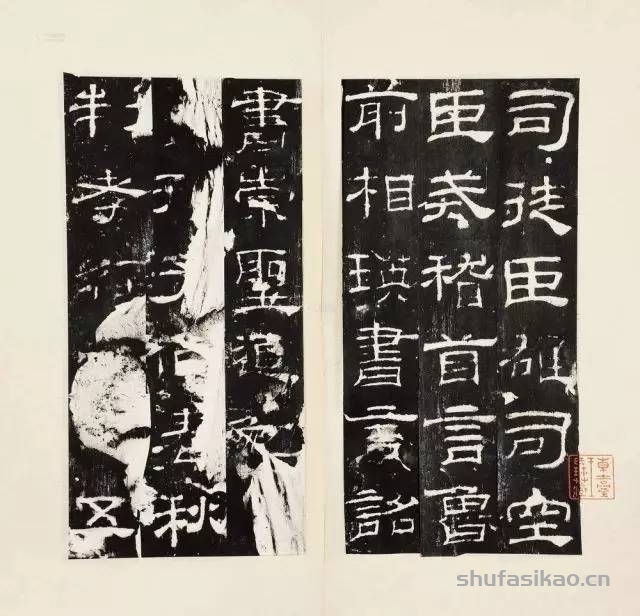 司徒臣雄司空
臣戒稽首言魯
前相瑛書言詔
書崇聖道勉
孔子作春秋
制孝五
shufasikao.cn